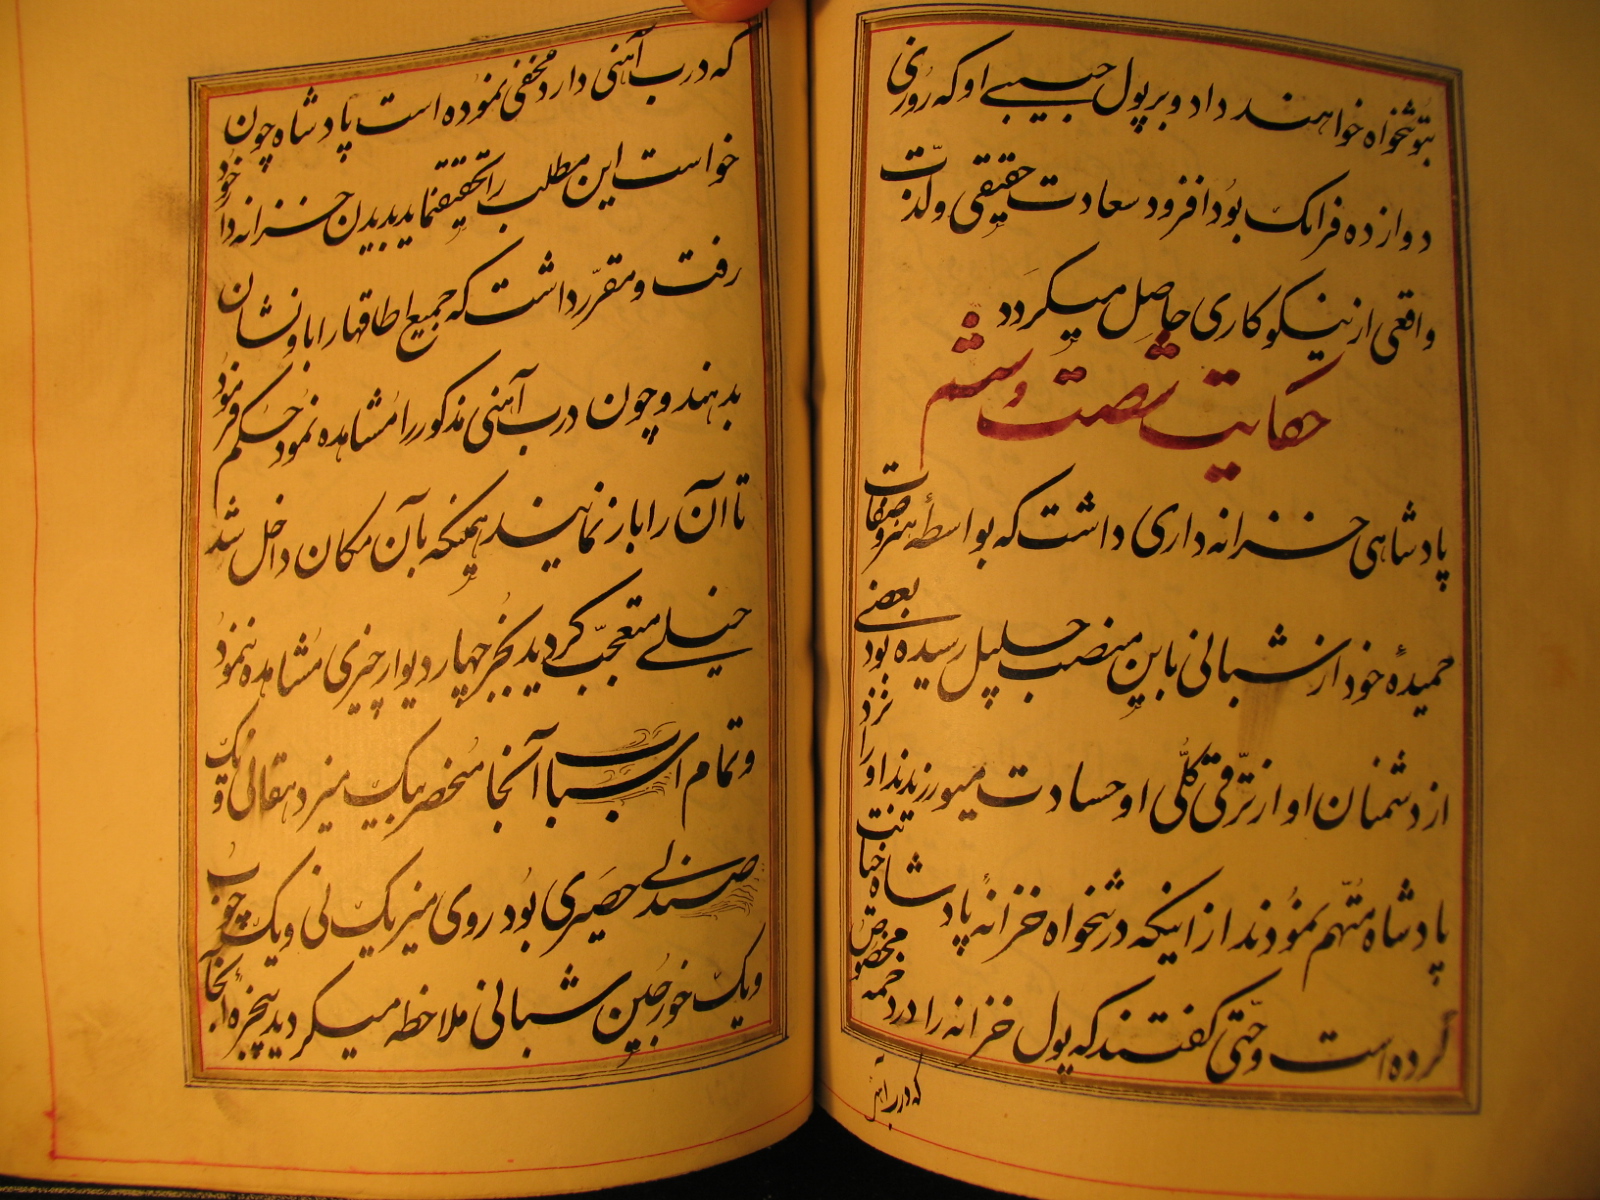 بتو تنخواه خواهند داد و بر پول جیبی او که روزی
دوازده فرانک بود افزود سعادت حقیقی و لذت
واقعی از نیکوکاری حاصل میکردد
حکایت شصت و ششم
پادشاهی خزانه داری داشت که بواسطهٔ هنر و صفات
حمیدهٔ خود از شبانی باین منصب جلیل رسیده بود بعضی
از دشمنان او از ترقی کلی او حسادت میورزیدند او را نزد
پادشاه متهم نمودند از اینکه در تنخواه خزانهٔ پادشاه خیانت
کرده است و حتی کفتند که پول خزانه را در دخمه مخصوص
که درب آهنی
که درب آهنی دارد مخفی نموده است پادشاه چون
خواست این مطلب را تحقیق نماید بدیدن خزانه دار خود
رفت و مقرر داشت که جمیع اطاقها را باو نشان
بدهند و چون درب آهنی مذکور را مشاهده نمود حکم فرمود
تا آن را باز نمایند همینکه بآن مکان داخل شد
خیلی متعجب کردید بجز چهار دیوار چیزی مشاهده ننمود
و تمام اسباب آنجا منحصر بیک میز دهقانی و یک
صندلی حصیری بود روی میز یک نی و یک چوب
و یک خورجین شبانی ملاحظه میکردید پنجرهٔ آنجا